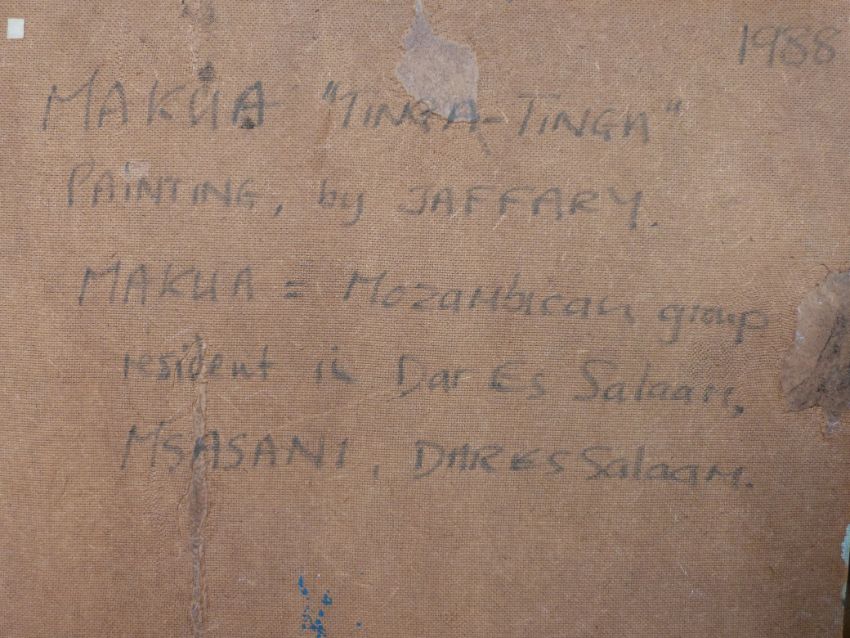 1988
MAKUA "TINGA-TINGA"
PAINTING, by JAFFARY.
MAKUA = Mozambican group
resident in Dar Es Salaam,
MSASANI, DAR ES Salaam.